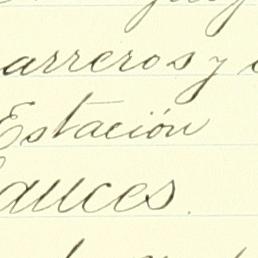 arreros y
Estación
auces.